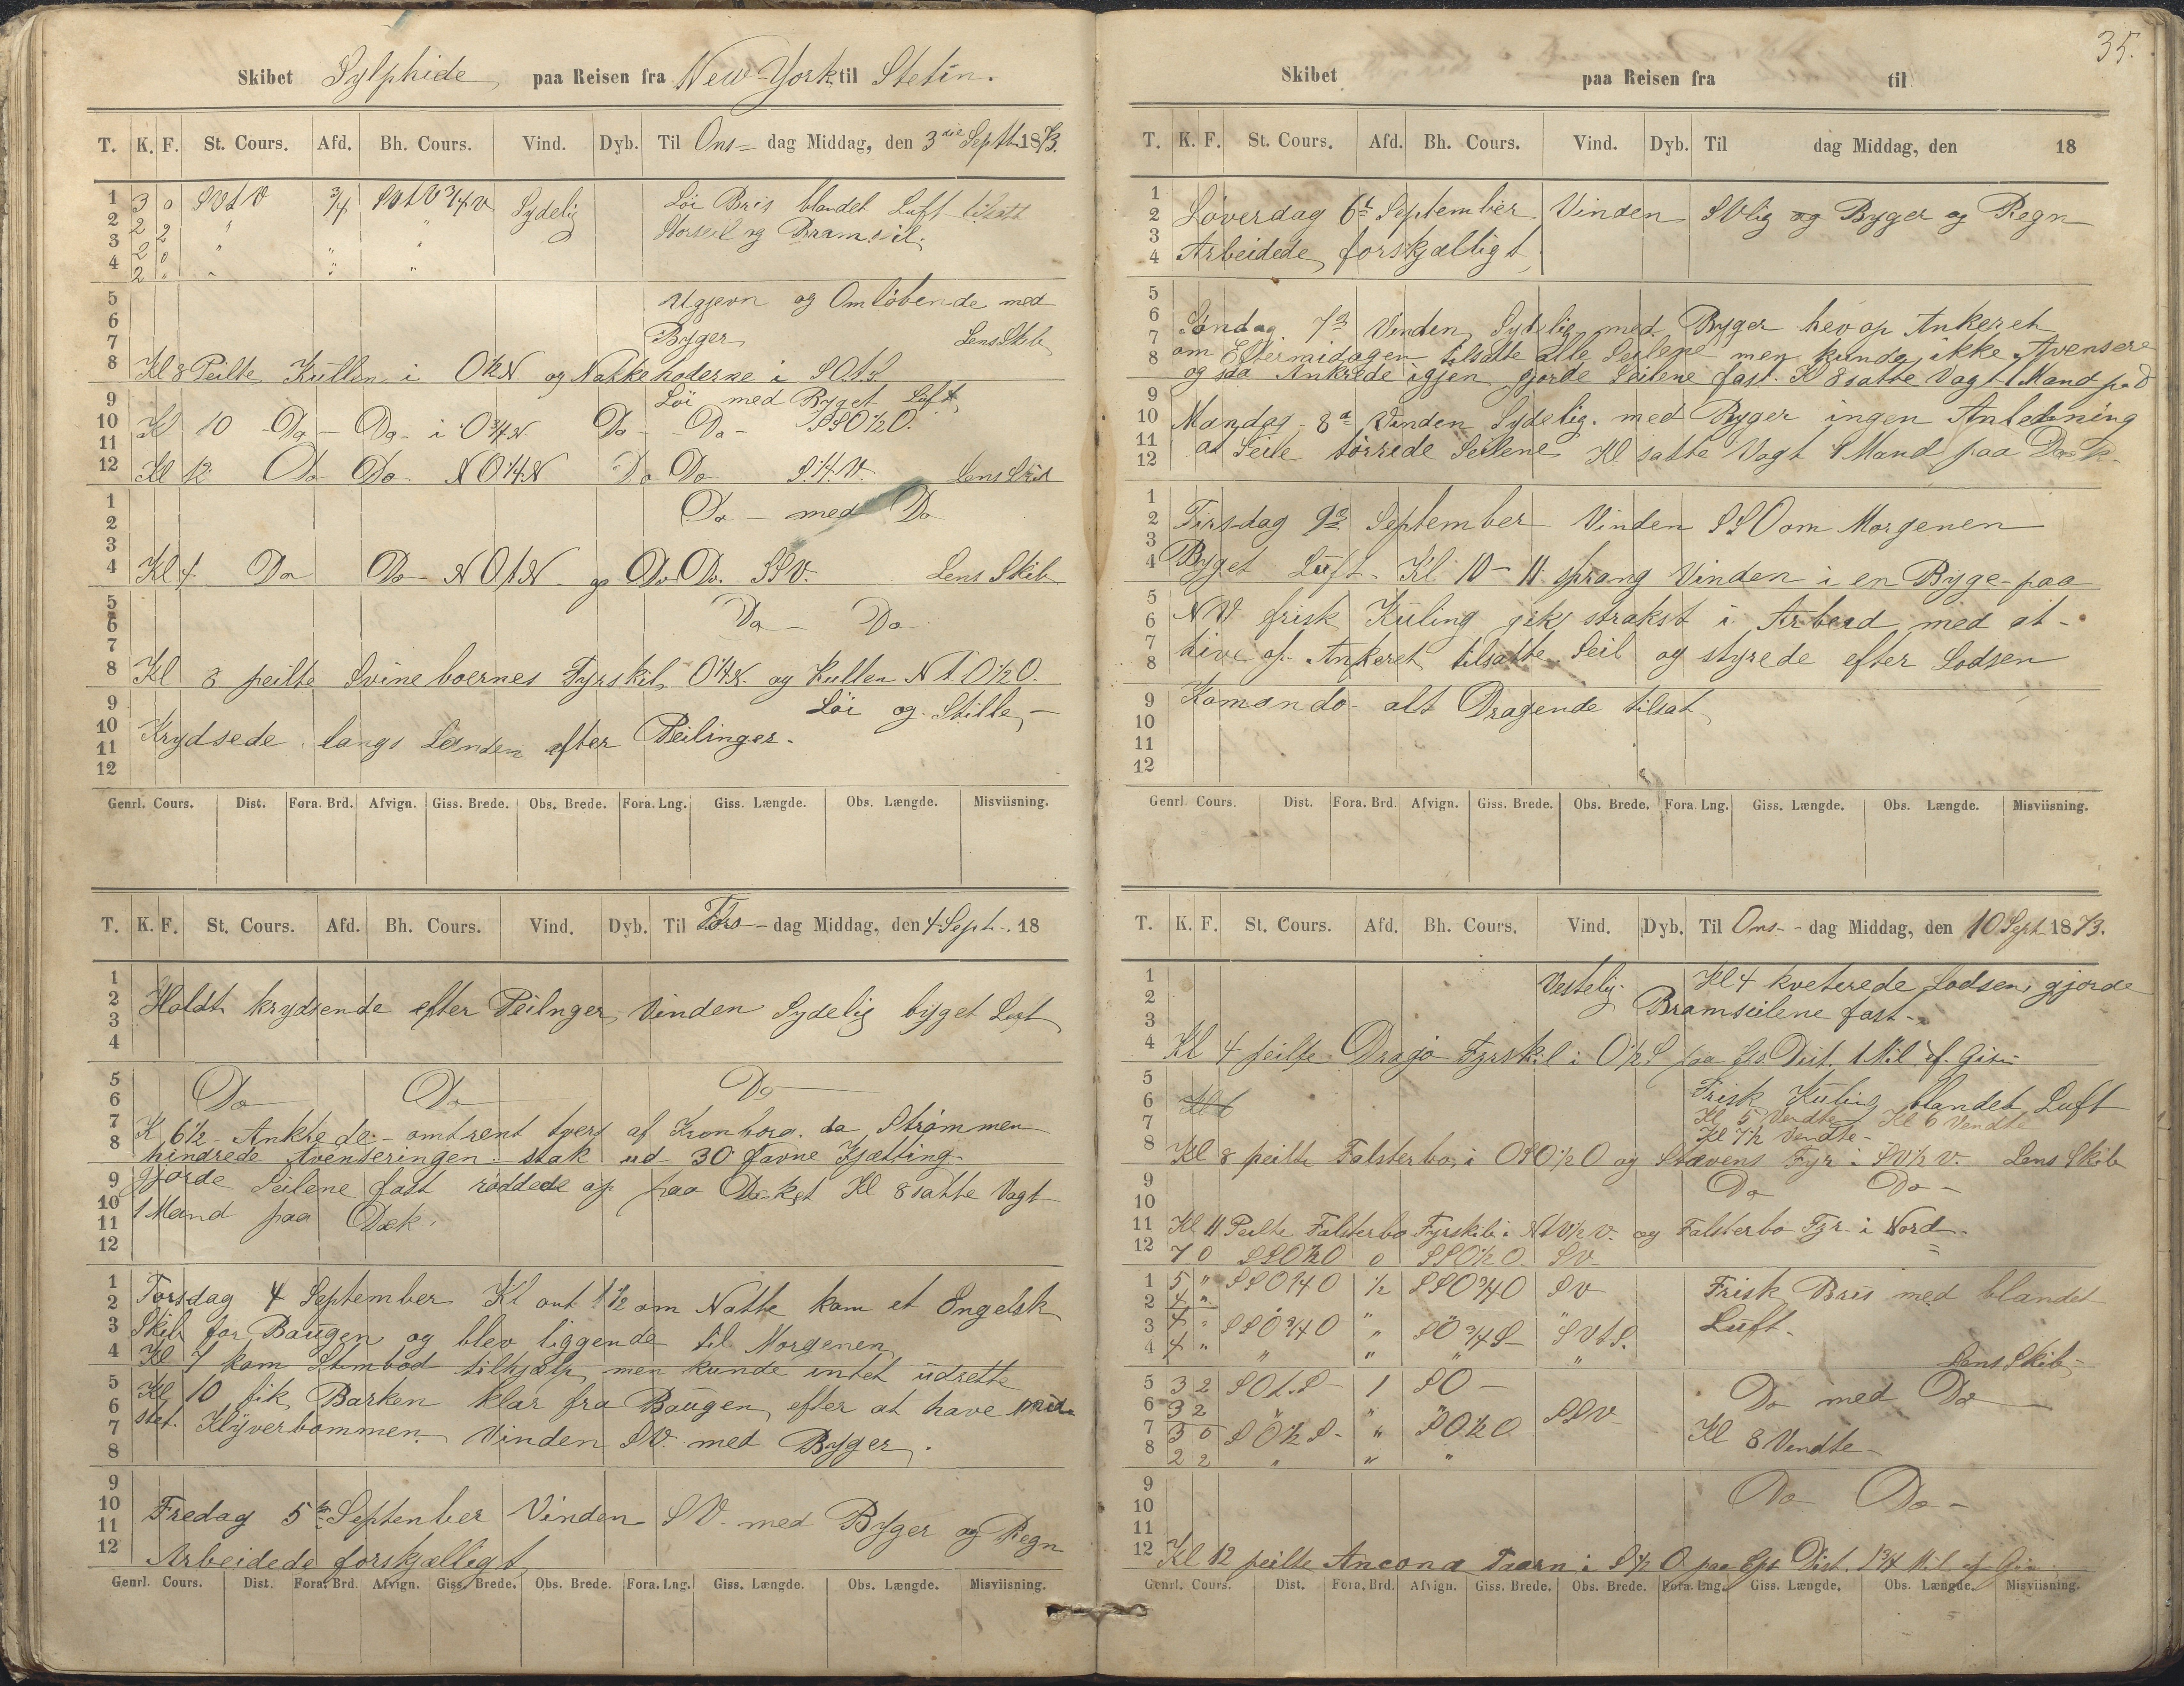 Skibet Sylphide paa Reisen fra New-York til Stetin.
T. K. F. St. Cours. Afd. Bh. Cours. Vind. Dyb. Til Ons= dag Middag, den 3die Septb. 1873.
1 3 0 SVtV 3/4 SVtV3/4V Sydelig Löi Bris blandet Luft tilsatt
2 2 2 " " Storseil og Bramseil.
3 2 0 " " "
4 2 " " " "
5 Ugjevn og Omlöbende med
6 Byger Lens Skib
7
8 Kl 8 Peilte Kullen i O1/2N og Nakkehoderne i SOtS
9 Löi med Byget Luft
10 Kl 10 Do - Do - i O3/4N. Do - Do - SSO1/2O.
11
12 Kl 12 Do Do NO1/4N Do Do S1/4V. Lens Skib
1 Do - med Do
2
3
4 Kl 4 Do Do - NOtN - og Do Do. SSV. Lens Skib
5 Do - Do
6
7
8 Kl 8 peilte Svineboernes Fyrskib O1/4N. og Kullen NtO1/2O.
9 Löi og Stille, -
10 Krydsede langs Landen efter Peilinger.
11
12
Genrl. Cours. Dist. Fora. Brd. Afvign. Giss. Brede. Obs. Brede. Fora. Lng. Giss. Længde. Obs. Længde. Misviisning.
T. K. F. St. Cours. Afd. Bh. Cours. Vind. Dyb. Til Tors - dag Middag, den 4 Sept. 18
1
2 Holdt krydsende efter Peilnger, Vinden Sydelig byget Luft
3
4
5 Do Do Do
6
7 K 6 1/2 - Ankrede - omtrent tvers af Kronborg. da Strømmen
8 hindrede Avenseringen. stak ud 30 Favne Kjætting
9 gjorde Seilene fast röddede op paa Deket Kl 8 satte Vagt
10 1 Mand paa Dæk.
11
12
1 Torsdag 4 September Kl omt 1 1/2 om Natte kom et Engelsk
2 Skib for Baugen og blev liggende til Morgenen
3
4 Kl 7 kom Stimbod tilhjælp, men kunde intet udrette
5 Kl 10 fik Barken klar fra Baugen, efter at have mid
6 stet. Klyverbommen. Vinden SV. med Byger.
7
8
9
10 Fredag 5te September Vinden SV. med Byger og Regn
11
12 Arbeidede forskjælligt
Genrl. Cours. Dist. Fora. Brd. Afvign. Giss. Brede. Obs. Brede. Fora. Lng. Giss. Længde. Obs. Længde. Misviisning.
35.
Skibet paa Reisen fra til
T. K. F. St. Cours. Afd. Bh. Cours. Vind. Dyb. Til dag Middag, den 18
1
2 Löverdag 6te September Vinden SVlig og Byger og Regn
3
4 Arbeidede forskjælligt
5
6 Söndag 7de Vinden Sydelig med Byger hev op Ankeret
7 om Eftermidagen tilsatte alle Seilene men kunde ikke Avensere
8 og saa Ankrede igjen gjorde Seilene fast. Kl 8 satte Vagt 1 Mand paa D
9
10 Mandag 8de Vinden Sydelig. med Byger ingen Anledning
11 at Seile törrede Seilene Kl satte Vagt 1 Mand paa Dæk.
12
1
2 Tirsdag 9de September Vinden SSO om Morgenen
3
4 Byget Luft. Kl 10 - 11 sprang Vinden i en Byge - paa
5
6 NV frisk Kuling gik strakst i Arbeid med at -
7
8 hive op Ankeret tilsatte Seil og styrede efter Lodsen
9 Komando - alt Dragende tilsat
10
11
12
Genrl. Cours. Dist. Fora. Brd. Afvign. Giss. Brede. Obs. Brede. Fora. Lng. Giss. Længde. Obs. Længde. Misviisning.
T. K. F. St. Cours. Afd. Bh. Cours. Vind. Dyb. Til Ons - dag Middag, den 10 Sept 1873.
1 Vestelig Kl 4 kveterede Lodsen, gjorde
2 Bramseilene fast -
3
4 Kl 4 peilte Dragö Fyrskib i O1/2S paa Gis Dist. 1 Mil af Gisn
5 Frisk Kuling blandet Luft
6 Kl 6 Kl 5 Vendte Kl 6 Vendte
7 Kl 7 1/2 Vendte -
8 Kl 8 peilte Falsterbo i OSO1/2O og Stævens Fyr i SV1/2V. Lens Skib
9 Do Do -
10
11 Kl 11 Peilte Falsterbo Fyrskib i NtV1/2V. og Falsterbo Fyr i Nord -
12 7 0 SSO1/2O 0 SSO1/2O. SV -
1 5 " SSO3/4O 1/2 SSO3/4O SV Frisk Bris med blandet
2 4 "
3 4 " SSO3/4O " SO3/4S " SVtS. Luft -
4 4 " " " " " Lens Skib -
5 3 2 SOtS - 1 SO - Do med Do -
6 3 2 " " " SSV
7 3 0 SO1/2S - " SO1/2O Kl 8 Vendte -
8 2 2 " " "
9 Do Do -
10
11
12 Kl 12 peilte Ancona Taarn i S1/2O paa Gis Dist. 1 3/4 Mil af Gis
Genrl. Cours. Dist. Fora. Brd. Afvign. Giss. Brede. Obs. Brede. Fora. Lng. Giss. Længde. Obs. Længde. Misviisning.